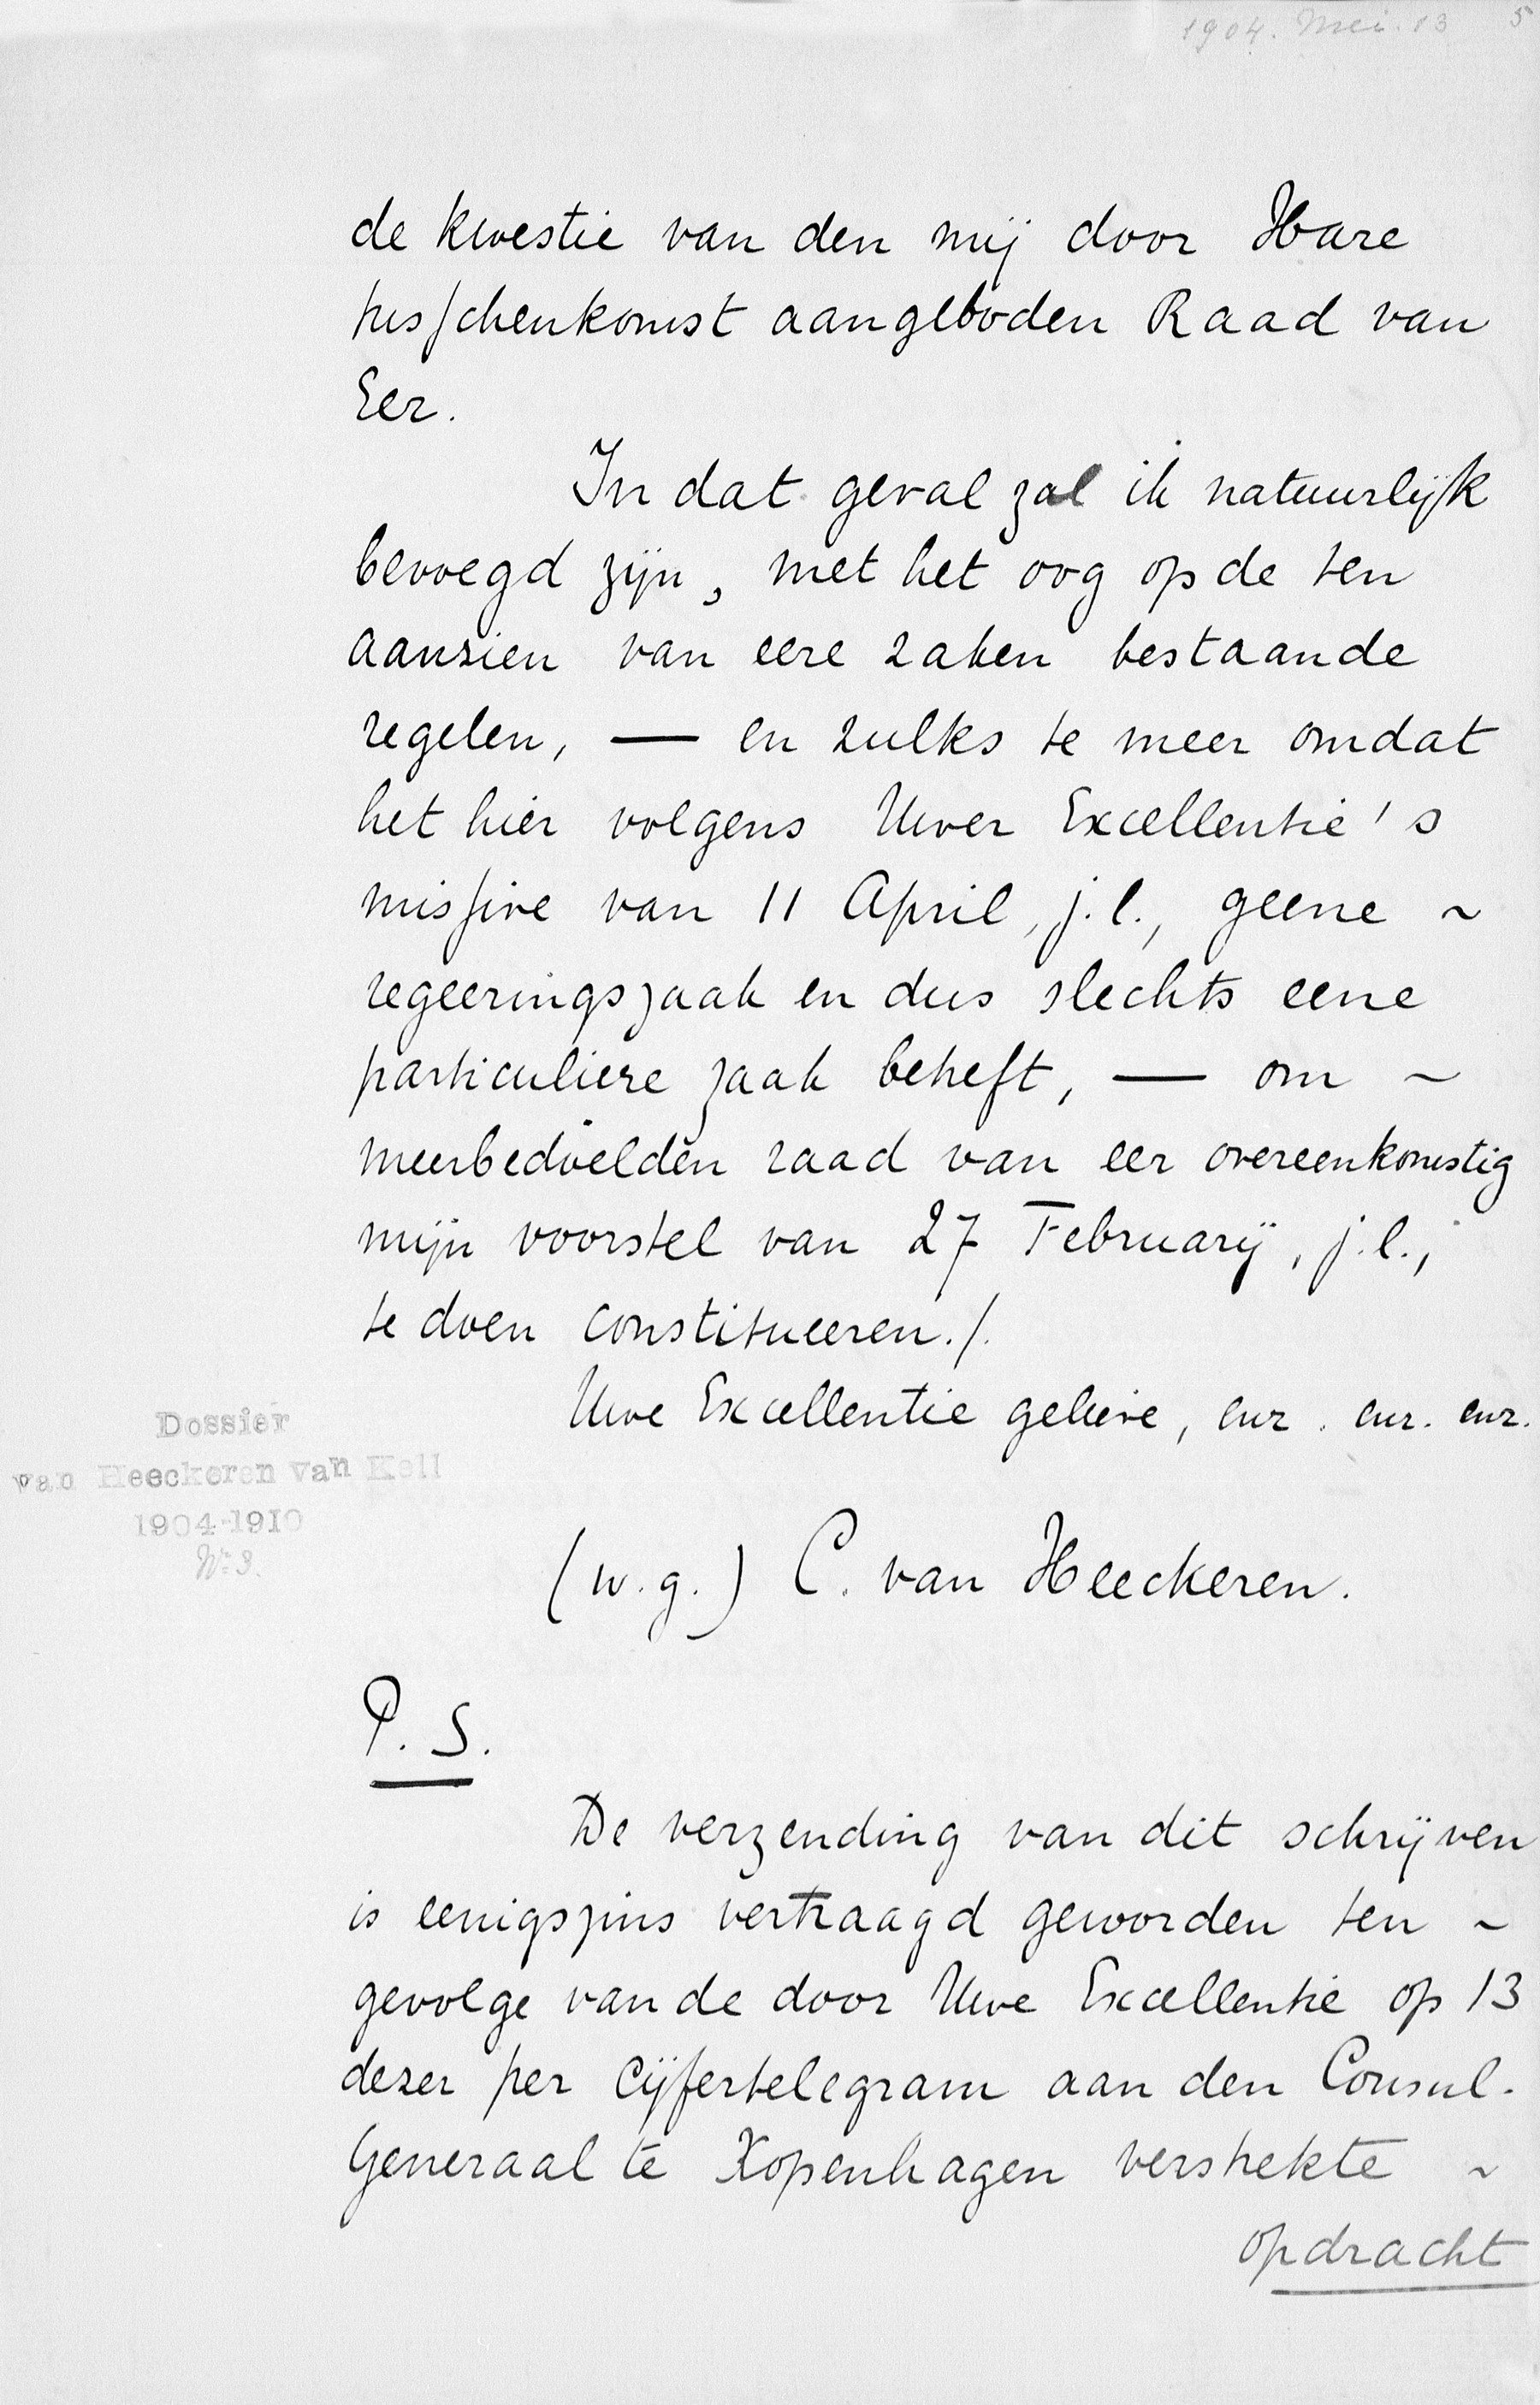 1904. Mei. 13 5
de kwestie van den mij door Hare
tusschenkomst aangeboden Raad van
Eer.
In dat geval zal ik natuurlijk
bevoegd zijn, met het oog op de ten
aanzien van eere zaken bestaande
regelen, — en zulks te meer omdat
het hier volgens Uwer Excellentie's
missive van 11 April, j.l., geene ~
regeeringszaak en dus slechts eene
particuliere zaak betreft, — om ~
meerbedoelden raad van eer overeenkomstig
mijn voorstel van 27 Februarij, j.l.,
te doen constitueeren./.
Uwe Excellentie gelieve, enz. enz. enz.
Dossier
van Heeckeren van Kell
1904-1910
No 3.
(w.g.) C. van Heeckeren.
P.S.
De verzending van dit schrijven
is eenigszins vertraagd geworden ten ~
gevolge van de door Uwe Excellentie op 13
dezer per cijfertelegram aan den Consul-
Generaal te Kopenhagen verstrekte ~
opdracht